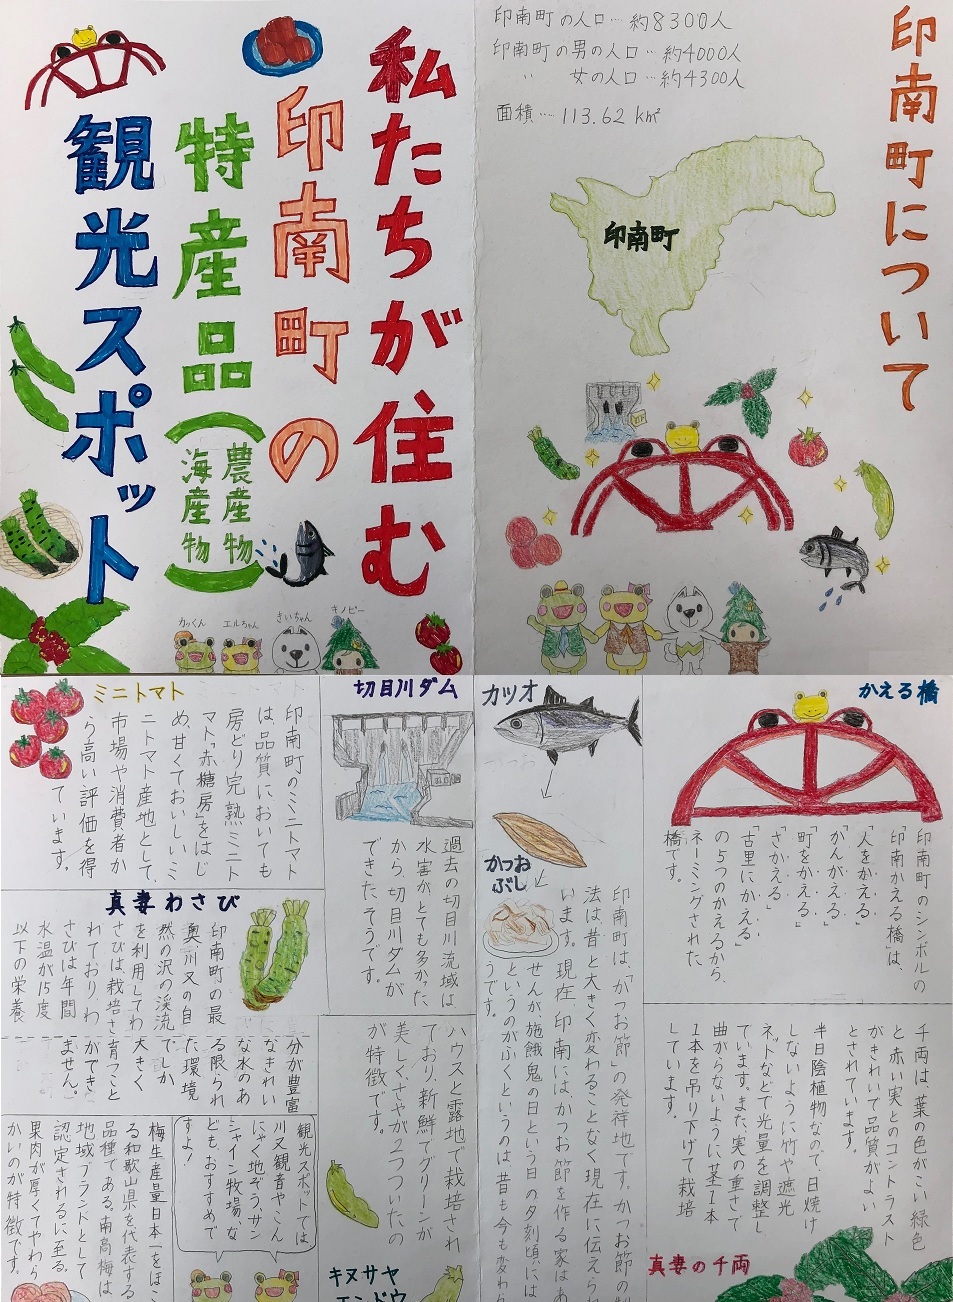 私たちが住む
印南町の
特産品(農産物
海産物)
観光スポット
カッくん
エルちゃん
きいちゃん
キノピー
印南町について
印南町の人口…約8300人
印南町の男の人口…約4000人
〃 女の人口…約4300人
面積…113.62km²
印南町
かえる橋
印南町のシンボルの
「印南かえる橋」は、
「人をかえる」
「かんがえる」
「町をかえる」
「さかえる」
「古里にかえる」
の5つのかえるから、
ネーミングされた
橋です。
カツオ
かつお
ぶし
印南町は、「かつお節」の発祥地です。かつお節の製
法は昔と大きく変わることなく現在に伝えら
います。現在、印南にはかつお節を作る家はあ
せんが、施餓鬼の日という日の夕刻頃には
というのがふくというのは昔も今も変わら
うです。
切目川ダム
過去の切目川流域は
水害がとても多かった
から、切目川ダムが
できた、そうです。
ミニトマト
印南町のミニトマト
は、品質においても
房どり完熟ミニト
マト「赤糖房」をはじ
め、甘くておいしいミ
ニトマト産地として、
市場や消費者か
ら高い評価を得
ています。
真妻わさび
印南町の最
奥、川又の自
然の沢の渓流
を利用してわ
さびは栽培さ
れており、わ
さびは年間
水温が15度
以下の栄養
分が豊富
なきれい
な水のあ
る限られ
た環境
でしか
大きく
育つこと
ができ
ません。
千両は、葉の色がこい緑色
と赤い実とのコントラスト
がきれいで品質がよい
とされています。
半日陰植物なので、日焼け
しないように竹や遮光
ネットなどで光量を調整し
ています。また、実の重さで
曲がらないように茎1本
1本を吊り下げて栽培
しています。
真妻の千両
ハウスと露地で栽培され
ており、新鮮でグリーンが
美しく、さやが2つついたの
が特徴です。
キヌサヤ
エンドウ
観光スポットでは
川又観音やこん
にゃく地ぞう、サン
シャイン牧場、な
ども、おすすめで
すよ!
梅生産量日本一をほこ
る和歌山県を代表する
品種である、南高梅は
地域ブランドとして
認定されるに至る。
果肉が厚くてやわら
かいのが特徴です。